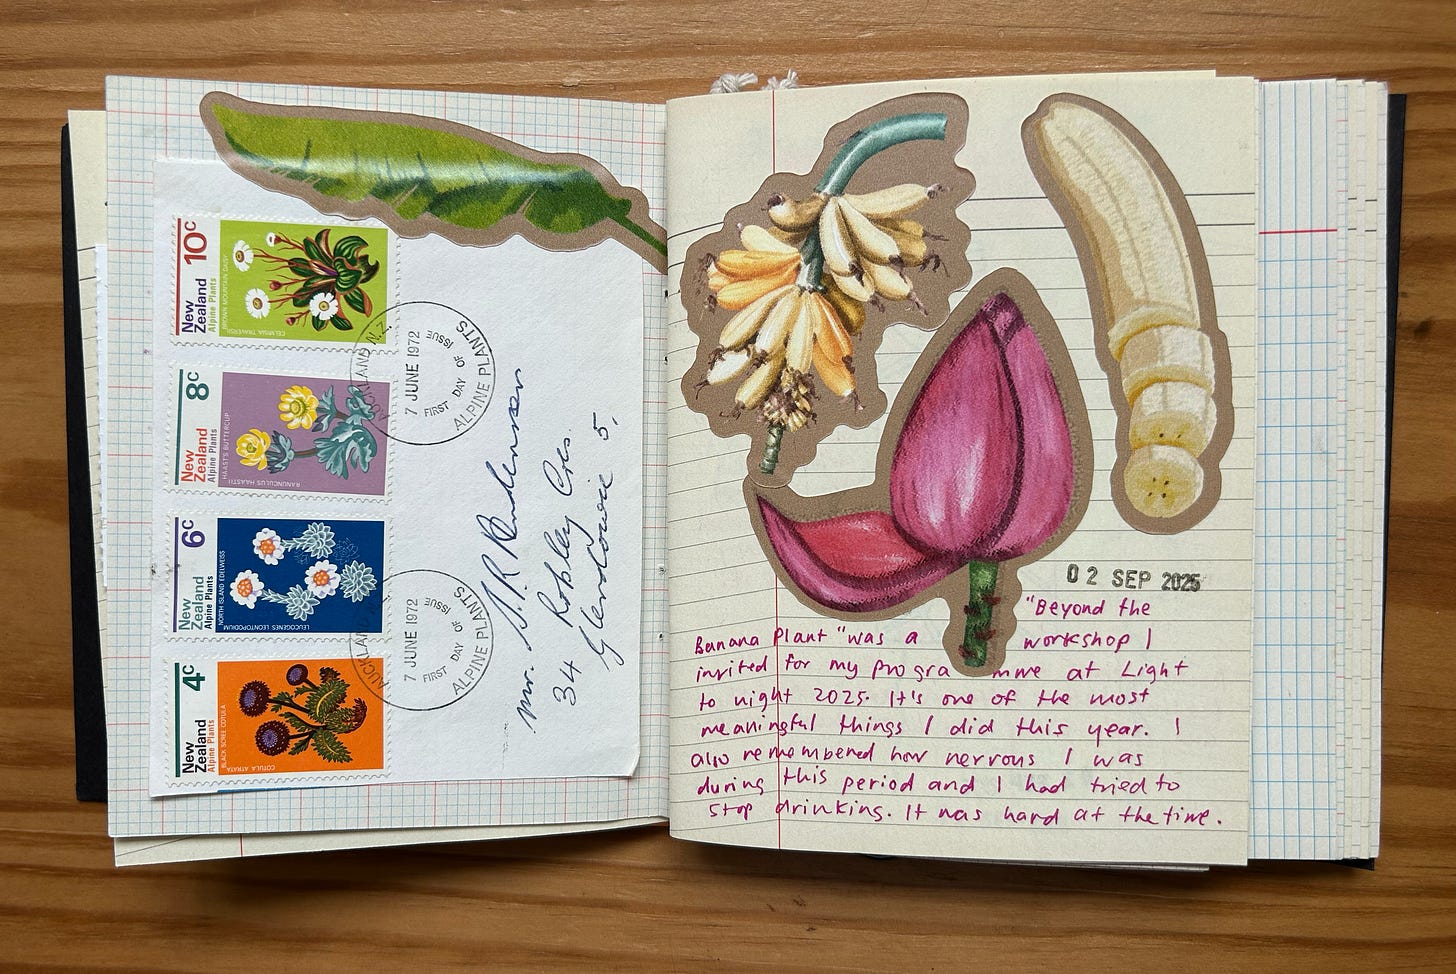 10c
New Zealand
Alpine Plants
BROWN MOUNTAIN DAISY
CELMISIA TRAVERSII
8c
New Zealand
Alpine Plants
HAAST'S BUTTERCUP
RANUNCULUS HAASTII
6c
New Zealand
Alpine Plants
NORTH ISLAND EDELWEISS
LEUCOGENES LEONTOPODIUM
4c
New Zealand
Alpine Plants
BLACK SCREE COTULA
COTULA ATRATA
AUCKLAND N.Z.
7 JUNE 1972
FIRST DAY OF ISSUE
ALPINE PLANTS
AUCKLAND N.Z.
7 JUNE 1972
FIRST DAY OF ISSUE
ALPINE PLANTS
Mr. S.R.
34 Robley Cres.
Glendowie 5.
02 SEP 2025
"Beyond the
Banana Plant" was a workshop I
invited for my programme at Light
to night 2025. It's one of the most
meaningful things I did this year. I
also remembered how nervous I was
during this period and I had tried to
stop drinking. It was hard at the time.